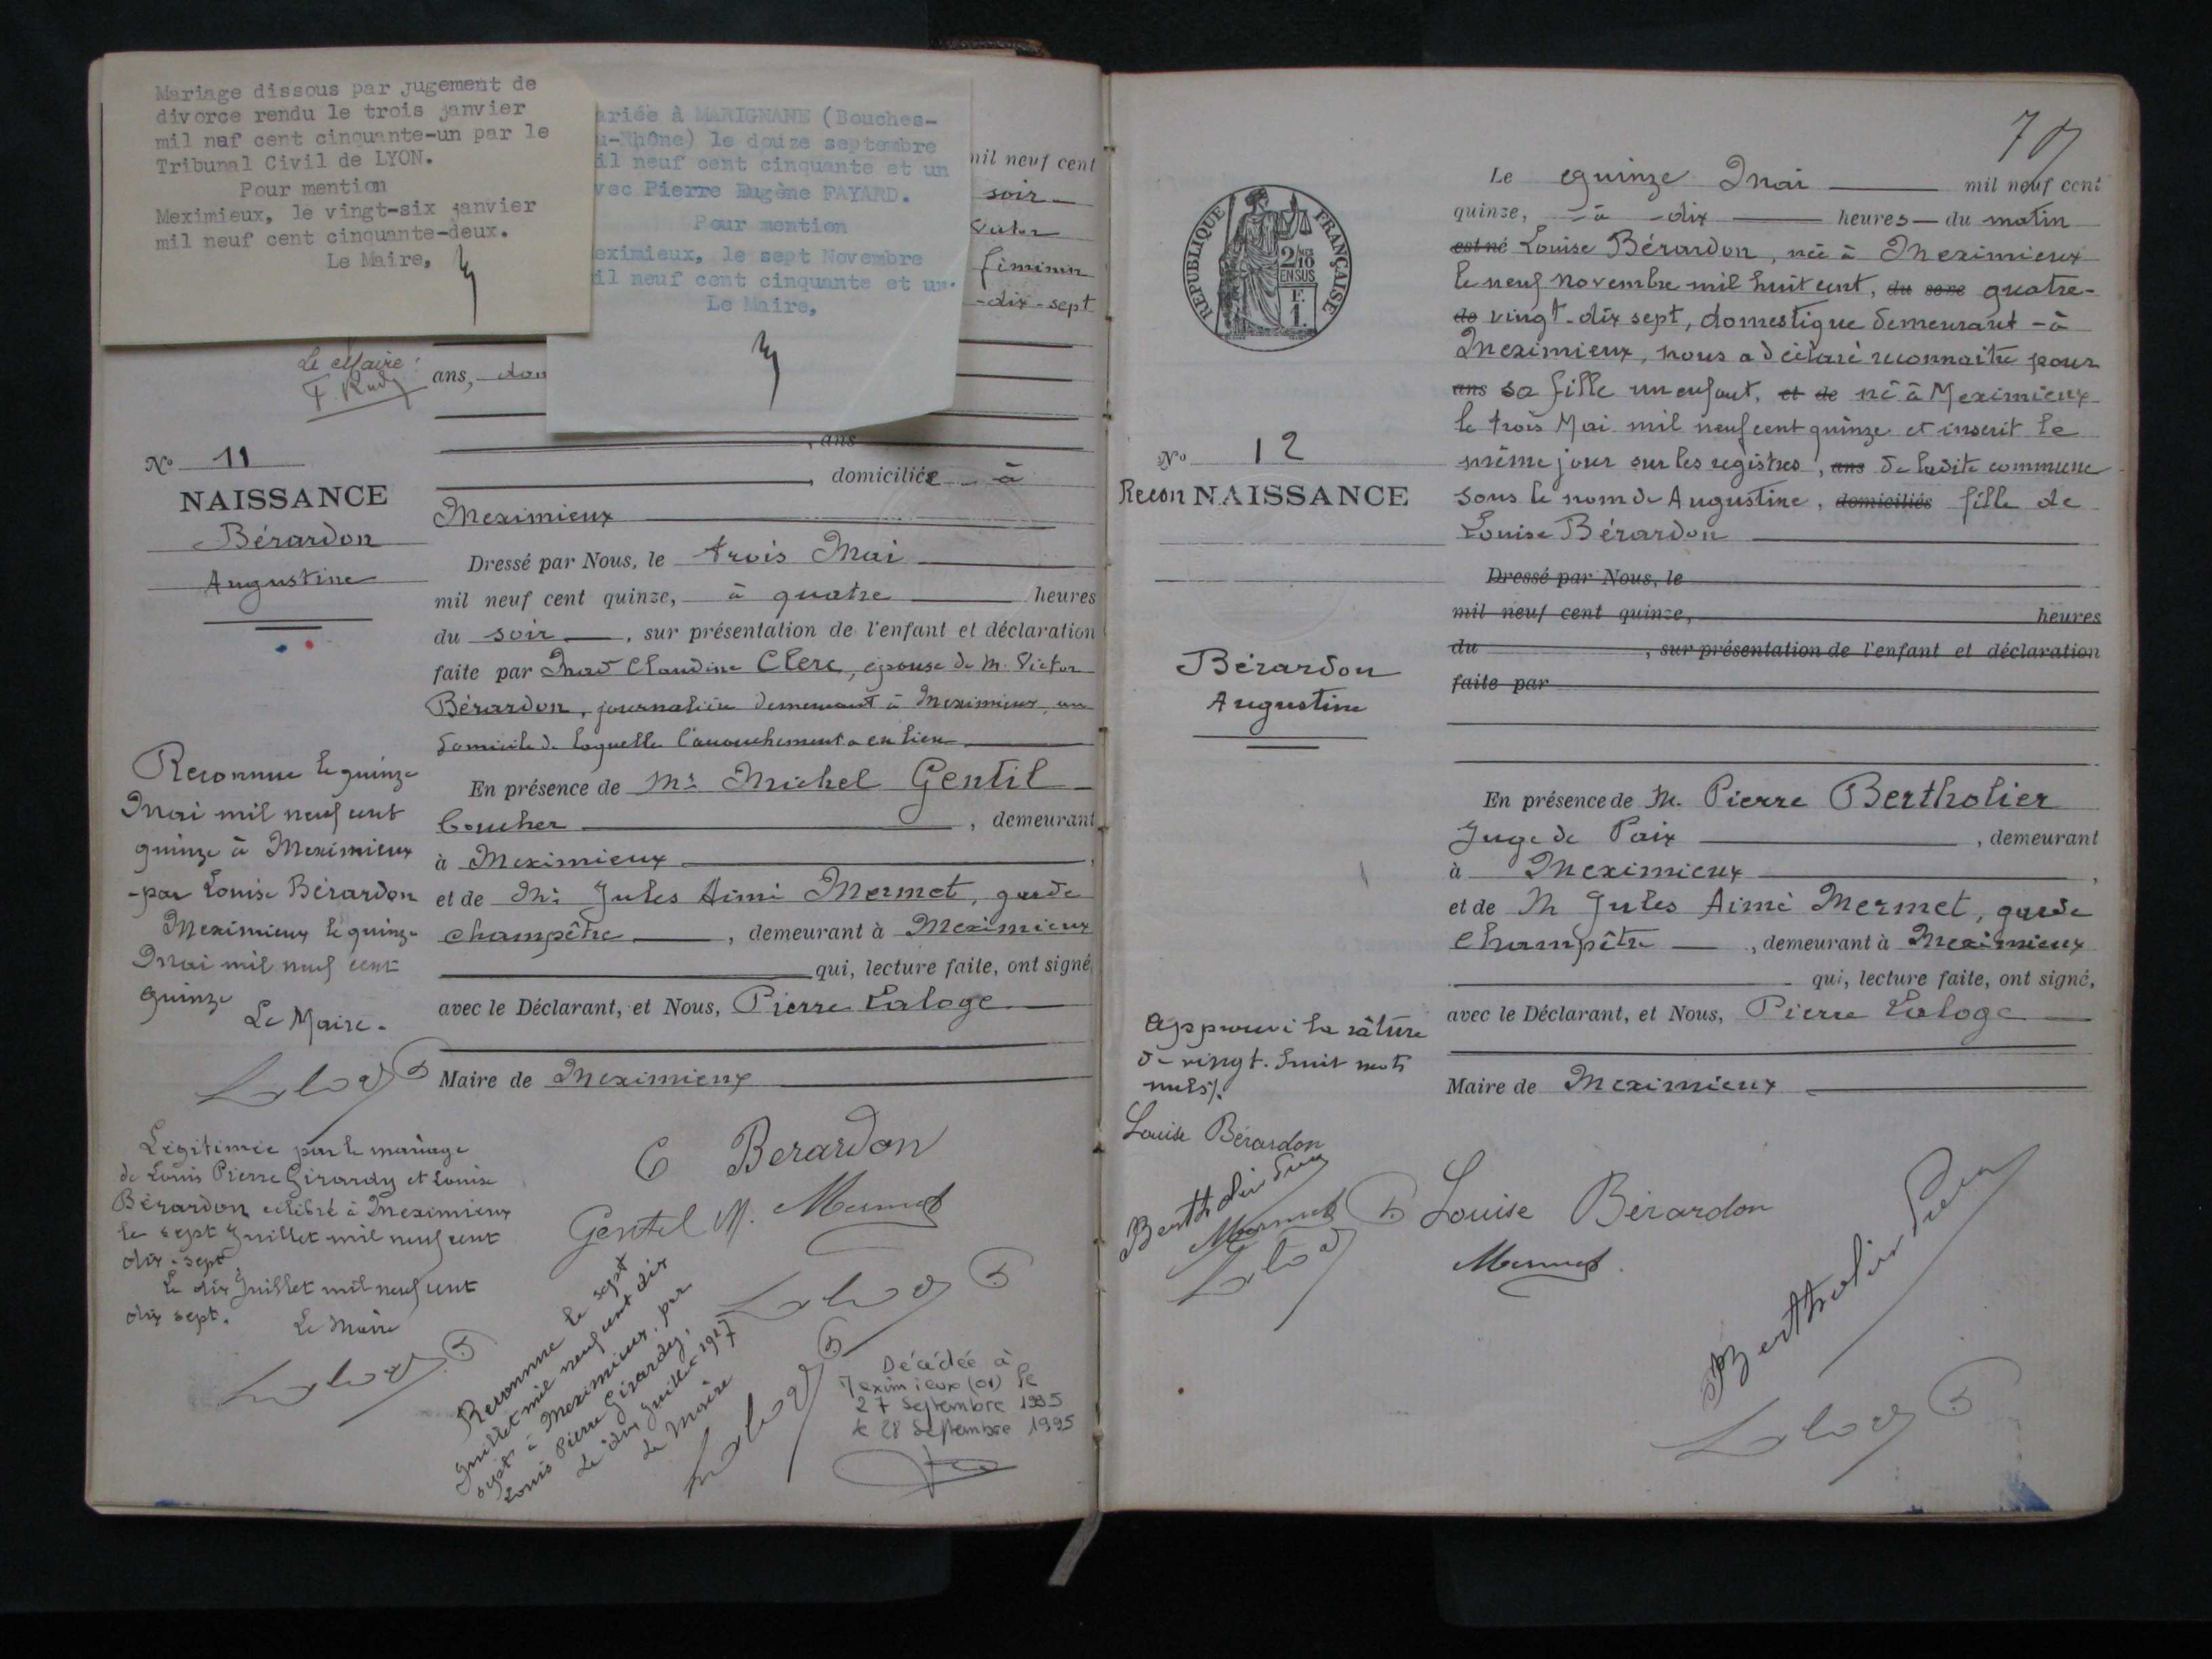 Mariage dissous par jugement de
divorce rendu le trois janvier
mil nef cent cinquante-un par le
Tribunal Civil de LYON.
Pour mention
Meximieux, le vingt-six janvier
mil neuf cent cinquante-deux.
Le Maire,
ariée à MARIGNANE (Bouches-
u-Rhône) le douze septembre
il neuf cent cinquante et un
vec Pierre Eugène FAYARD.
Pour mention
eximieux, le sept Novembre
il neuf cent cinquante et un.
Le Maire,
mil neuf cent
soir
féminin
-dix-sept
Le Maire :
ans,
, ans
domiciliée à
Meximieux
No 11
NAISSANCE
Bérardon
Augustine
Dressé par Nous, le trois Mai
mil neuf cent quinze, à quatre heures
du soir, sur présentation de l'enfant et déclaration
faite par Mad Claudine Clerc, épouse de M. Victor
Bérardon, journalière demeurant à Meximieux, au
domicile de laquelle l'accouchement a eu lieu
En présence de Mr Michel Gentil
boucher, demeurant
à Meximieux,
et de Mr Jules Aimé Mermet, garde
champêtre, demeurant à Meximieux
qui, lecture faite, ont signé
avec le Déclarant, et Nous, Pierre Laloge
Maire de Meximieux
Reconnue le quinze
Mai mil neuf cent
quinze à Meximieux
-par Louise Bérardon
Meximieux le quinze
Mai mil neuf cent
quinze
Le Maire.
Légitimée par le mariage
de Louis Pierre Girardy et Louise
Bérardon célébré à Meximieux
le sept Juillet mil neuf cent
dix-sept
Le dix Juillet mil neuf cent
dix sept.
Le Maire
C Berardon
Gentil M. Mermet
Reconnue le sept
Juillet mil neuf cent dix
sept à Meximieux par
Louis Pierre Girardy,
Le dix Juillet 1917
Le Maire
Décédée à
Meximieux (01) le
27 Septembre 1995
le 28 Septembre 1995
70
REPUBLIQUE FRANÇAISE
2/10
EN SUS
F.
1.
Le quinze Mai mil neuf cent
quinze, à dix heures du matin
est né Louise Bérardon, née à Meximieux
le neuf novembre mil huit cent, du sexe quatre-
de vingt-dix sept, domestique demeurant à
Meximieux, nous a déclaré reconnaitre pour
ans sa fille un enfant, et de né à Meximieux
le trois Mai mil neuf cent quinze et inscrit le
même jour sur les registres, ans de ladite commune
sous le nom de Augustine, domiciliés fille de
Louise Bérardon
No 12
Recon NAISSANCE
Bérardon
Augustine
Dressé par Nous, le
mil neuf cent quinze, heures
du, sur présentation de l'enfant et déclaration
faite par
En présence de M. Pierre Bertholier
Juge de Paix, demeurant
à Meximieux,
et de M Jules Aimé Mermet, garde
champêtre, demeurant à Meximieux
qui, lecture faite, ont signé,
avec le Déclarant, et Nous, Pierre Laloge
Maire de Meximieux
Approuvé la râture
de vingt-huit mots
nuls.
Louise Bérardon
Mermet
Louise Bérardon
Mermet
Bertholier Pierre